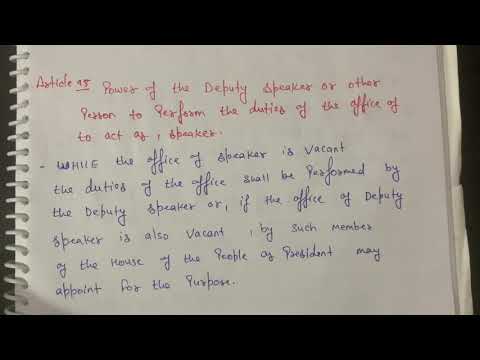 Article 95 Power of the Deputy Speaker or other
Person to Perform the duties of the office of
to act as, Speaker.
- WHILE the office of speaker is Vacant
the duties of the office shall be Performed by
the Deputy Speaker or, if the office of Deputy
speaker is also Vacant, by such member
of the House of the People as President may
appoint for the Purpose.